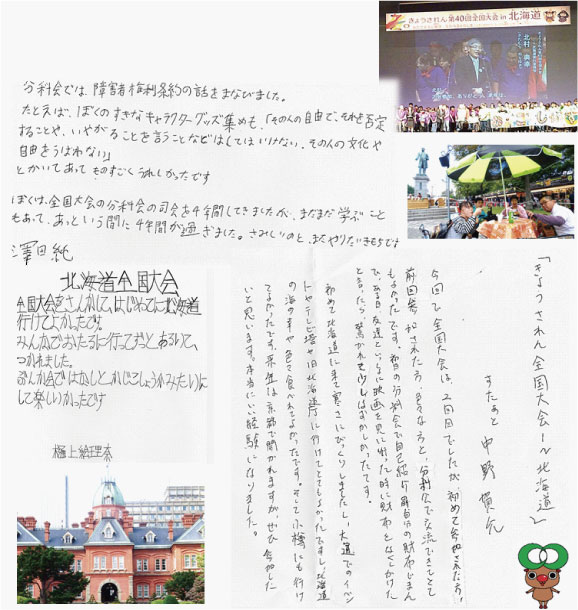 きょうされん第40回全国大会in北海道
分科会では、障害者権利条約の話をまなびました。
たとえば、ぼくのすきなキャラクターグッズ集めも、「その人の自由で、それを否定
することや、いやがることを言うことなどはしてはいけない、その人の文化や
自由をうばわない」
とかいてあってものすごくうれしかったです
ぼくは、全国大会の分科会の司会を4年間してきましたが、まだまだ学ぶこと
もあって、あっという間に4年間が過ぎました。さみしいのと、またやりたいきもちです
澤田純
北海道全国大会
全国大会をさんかして、はじめてに北海道
行けてよかったです。
みんなでおたるに行ってずっとあるいて、
つかれました。
ぶんか会では
して楽しかったです
極上絵理奈
「きょうされん全国大会〜北海道」
すたあと 中野
今回で全国大会は、2回目でしたが、初めて参加された方、
前回参加された方、色々な方と、分科会で交流できてとて
もよかったです。
で、ある日友達といっしょに映画を見に行った時に財布をなくしかけた
と言ったら、驚かれて少しはずかしかったです。
初めて北海道にきて寒さにびっくりしましたし、大通でのイベン
トやテレビ塔や旧北海道庁に行けてとてもよかったですし、北海道
の海の幸や色々食べれてよかったです。そして小樽にも行け
てよかったです。来年は京都で開かれますが、ぜひ参加した
いと思います。本当にいい経験になりました。